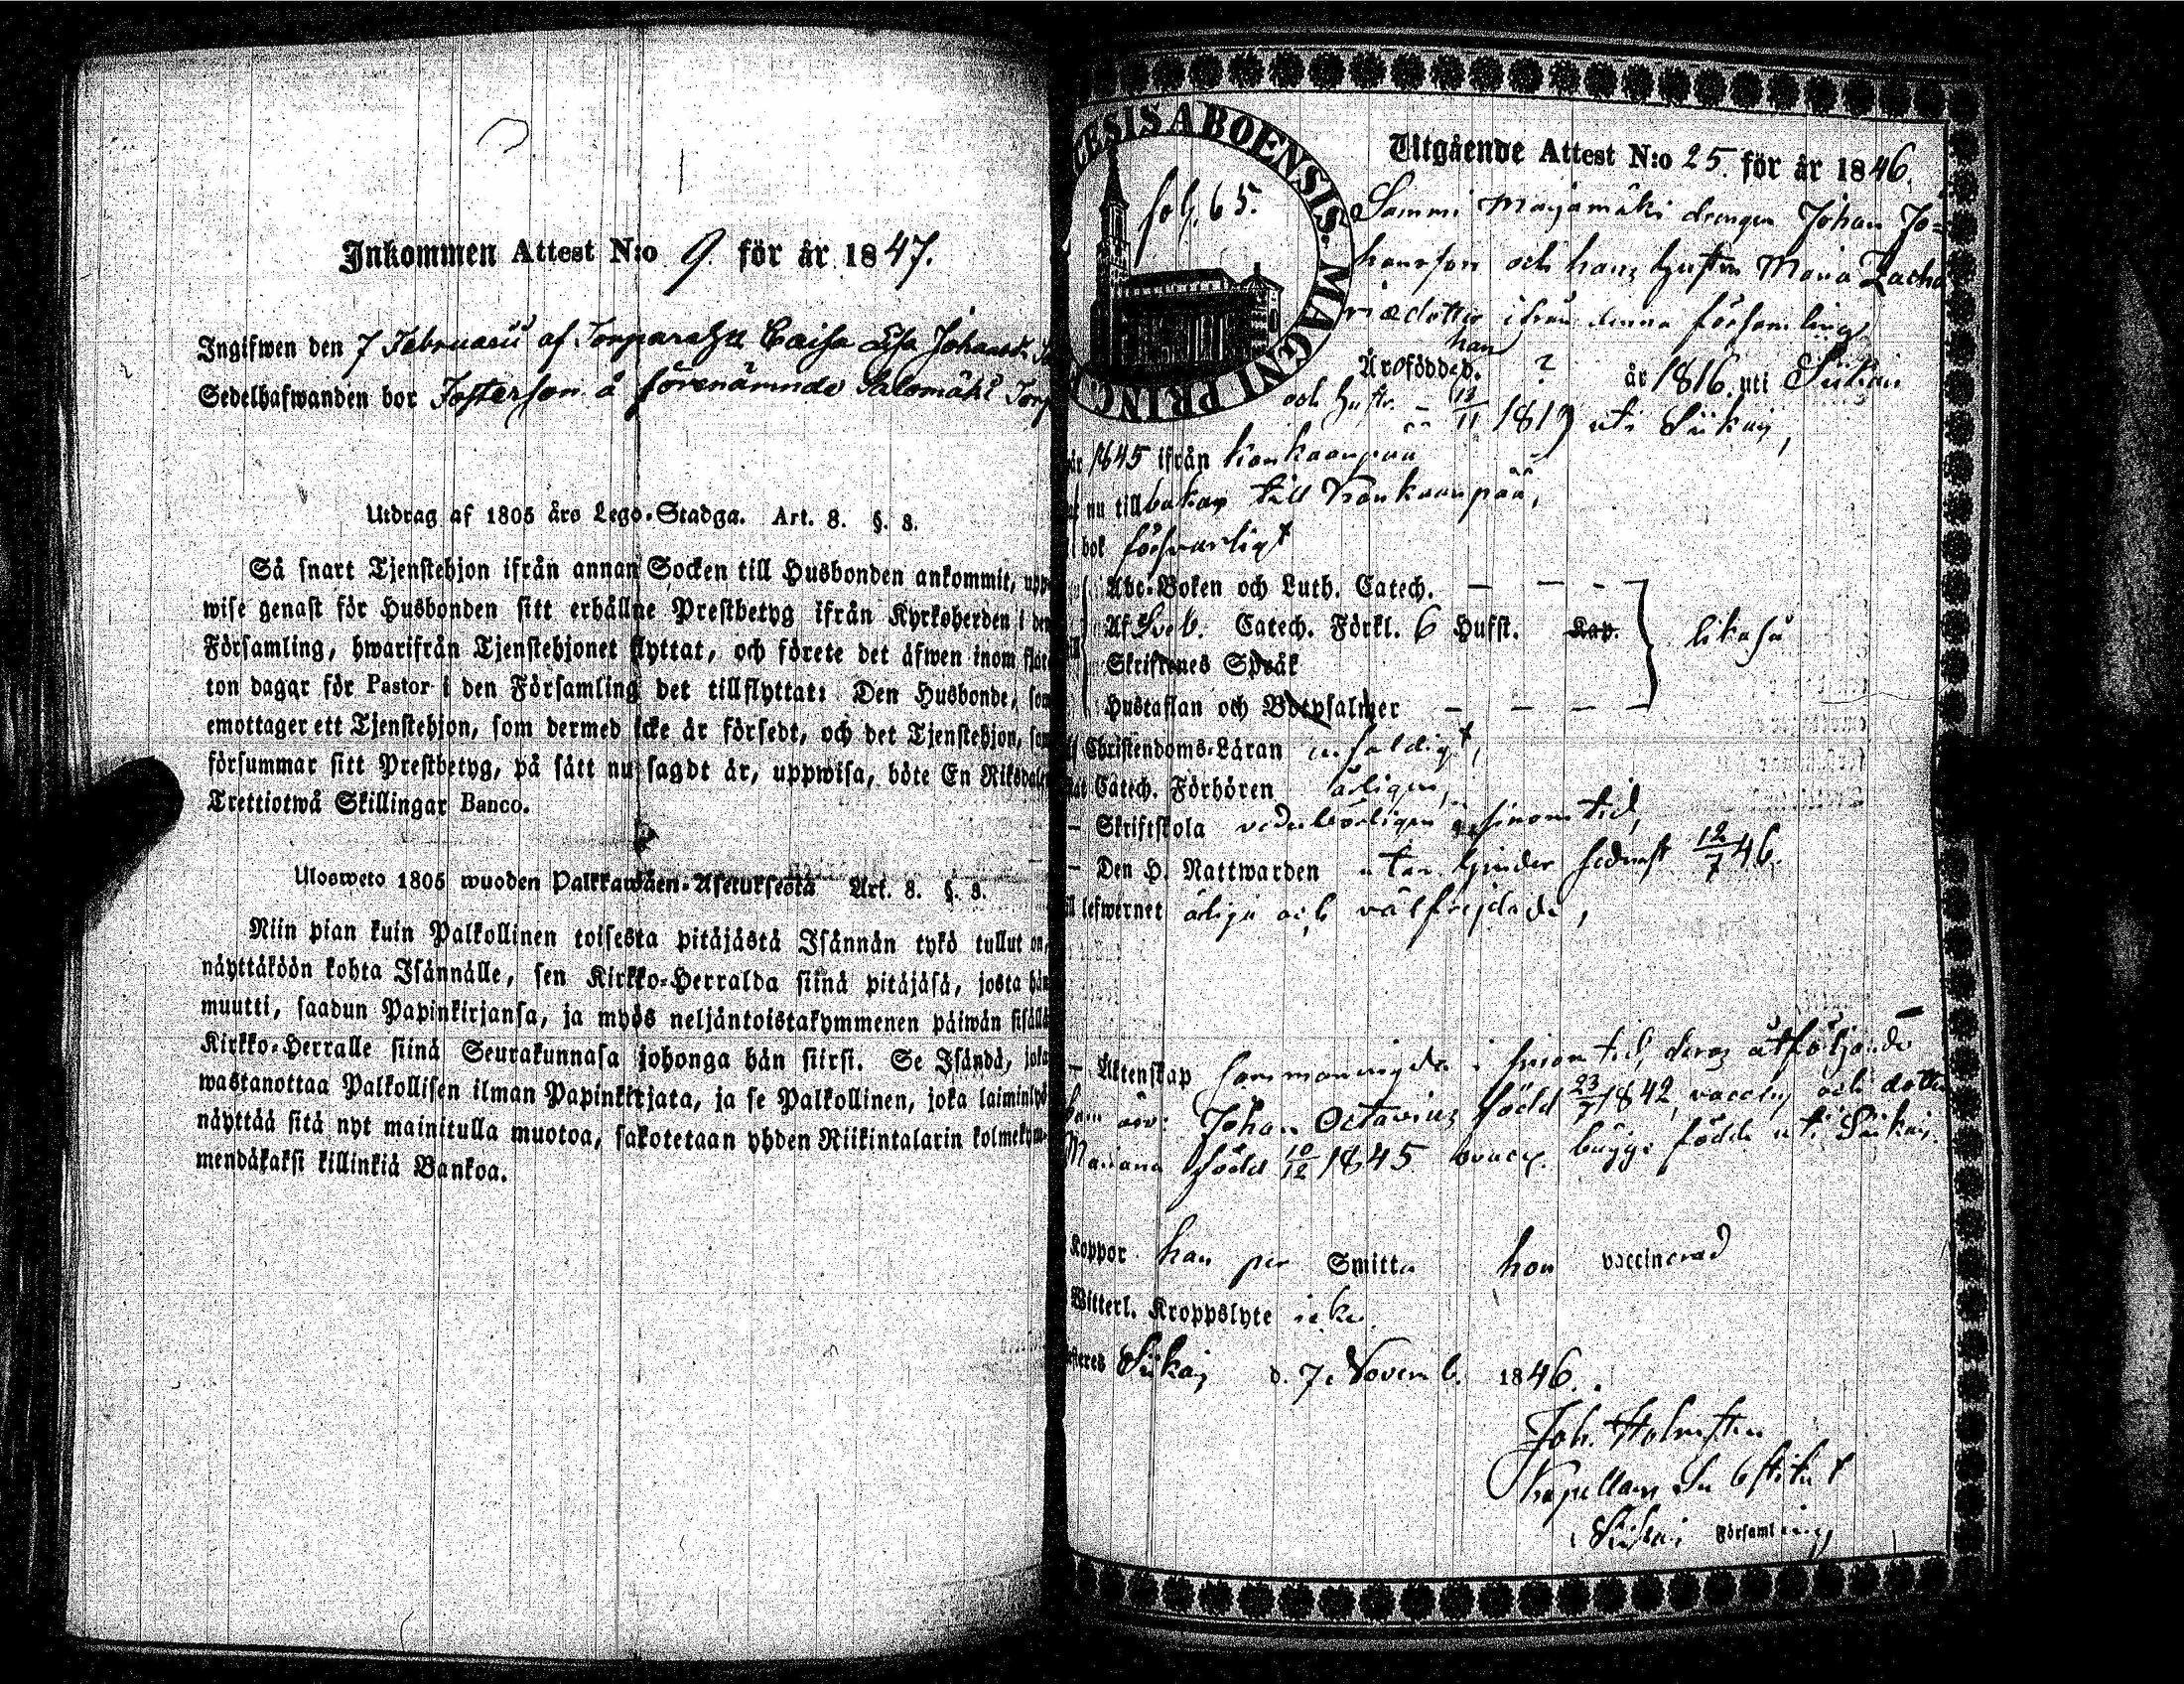 Inkommen Attest N:o 9. för år 1847.
Ingifwen den 7 Februarii af Caisa Lisa
Sedelhafwanden bor Fosterson å förenämnde
Utdrag af 1805 års Lego-Stadga. Art. 8. §. 8.
Så snart Tjenstehjon ifrån annan Socken till Husbonden ankommit, upp
wise genast för Husbonden sitt erhållne Prestbetyg ifrån Kyrkoherden i den
Församling, hwarifrån Tjenstehjonet flyttat, och förete det äfwen inom
ton dagar för Pastor i den Församling det tillflyttat: Den Husbonde, som
emottager ett Tjenstehjon, som dermed icke är försedt, och det Tjenstehjon, som
försummar sitt Prestbetyg, på sätt nu sagdt är, uppwisa, böte En Riksdaler
Trettiotwå Skillingar Banco.
Ulosweto 1805 wuoden Palkkawäen-Asetuksesta Art. 8. §. 8.
Niin pian kuin Palkollinen toisesta pitäjästä Isännän tykö tullut on,
näyttäköön kohta Isännälle, sen Kirkko-Herralda siinä pitäjäsä, josta hän
muutti, saadun Papinkirjansa, ja myös neljäntoistakymmenen päiwän sisällä
Kirkko-Herralle siinä Seurakunnasa johonga hän siirsi. Se Isändä, joka
wastanottaa Palkollisen ilman Papinkirjata, ja se Palkollinen, joka laiminlyö
näyttää sitä nyt mainitulla muotoa, sakotetaan yhden Riikintalarin kolmekym-
mendäkaksi killinkiä Bankoa.
CESIS ABOENSIS. MAGNI PRINC
fol. 65.
Utgående Attest N:o 25. för år 1846.
Sammi Mayamäki drengen Johan Jo-
hansson och hans hustru Maria Zacha
riædotter ifrån denna församling
han
Äro födde ? år 1816. uti Siikais
och hustr. 13/11 1819 uti Siikais,
år 1845 ifrån Kankaanpää
nu tillbakar till Kankaanpää,
i bok försvarligt
Abc-Boken och Luth. Catech.
Af Sveb. Catech. Förkl. 6 Hufst. Kap. likaså
Skriftenes Språk
Hustaflan och Botpsalmer
Christendoms-Läran enfaldigt,
Catech. Förhören årligen,
Skriftskola vederbörligen sinom tid,
Den H. Nattwarden utan hinder sednast 12/7 46.
lefwernet ärliga och välfrejdade,
Äktenskap sammanvigda i sinom tid, deras åtföljande
barn äro: Johan Octavius född 23/7 1842, vaccin, och dotter
Mariana född 10/12 1845 ovacc. bägge födde uti Siikais.
Koppor han per Smitta hon vaccinerad
Witterl. Kroppslyte icke.
Siikais d. 7. Novemb. 1846.
Joh. Holmsten
Kapellans Substitut
i Siikais Församling